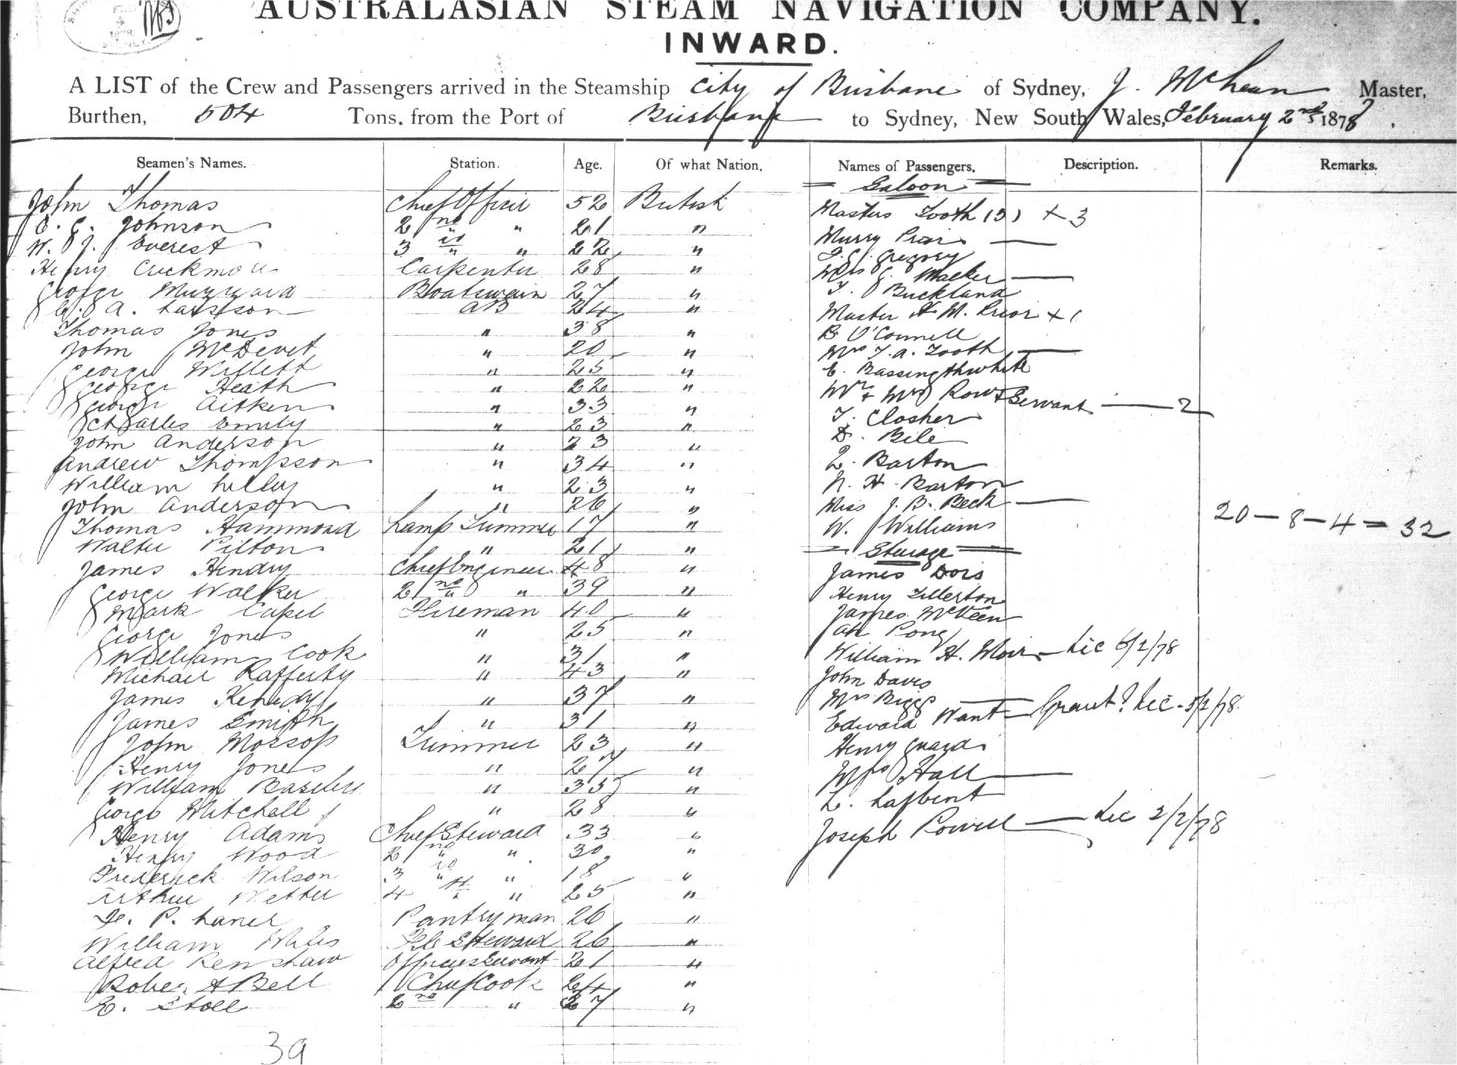 AUSTRALASIAN STEAM NAVIGATION COMPANY.
INWARD.
A LIST of the Crew and Passengers arrived in the Steamship City of Brisbane of Sydney, J. McLean Master,
Burthen, 504 Tons, from the Port of Brisbane to Sydney, New South Wales, February 2nd 1878.
Seamen's Names. Station. Age. Of what Nation. Names of Passengers. Description. Remarks.
Saloon
John Thomas Chief Officer 52 British Masters Tooth (3) x 3
E. C. Johnson 2nd " 21 " Murry Prior
W. J. Everest 3rd " 22 " F. C. Gregory
Henry Carpenter 28 " Mrs J. Walker
George Boatswain 27 " T. Buckland
C. A. AB 24 " Master H M. Prior x 1
Thomas Jones " 38 " B O'Connell
John McDevet " 20 " Mrs T. A. Tooth
George Willett " 25 " E. Bassingthwhite
George Heath " 22 " Mr & Mrs Row & Servant 2
George Aitken " 33 " T. Closher
Charles Emily " 23 " D. Bele
John Anderson " 23 " L. Barton
Andrew Thompson " 34 " N. H. Barton
William Lilley " 23 " Miss J. B. Beck
John Anderson " 26 " W. Williams
20 - 8 - 4 = 32
Thomas Hammond Lamp Trimmer 17 "
Walter Pilton " 21 " Steerage
James Hendry Chief Engineer 48 " James Dois
George Walker 2nd " 39 " Henry Tillerton
Mark Capel Fireman 40 " James McVeen
George Jones " 25 " Ah Pong
William Cook " 31 " William H. Moir Lic 6/2/78
Michael Rafferty " 43 " John Davis
James Kenedy " 37 " Mrs Biggs
James Smith " 31 " Edward Want Grant? Lic. 5/2/78
John Mossop Trimmer 23 " Henry Guard
Henry Jones " 27 " Mrs Hall
William " 35 " L.
George Mitchell " 28 " Joseph Powell Lic 2/2/78
Henry Adams Chief Steward 33 "
Henry Wood 2nd " 30 "
Frederick Wilson 3rd " 18 "
Arthur Wetter 4th " 25 "
F. P. Laner Pantryman 26 "
William Wales F.C. Steward 26 "
Alfred Renshaw Officers Servant 21 "
Robert A Bell Chief Cook 24 "
E. Stoll 2nd " 27 "
39